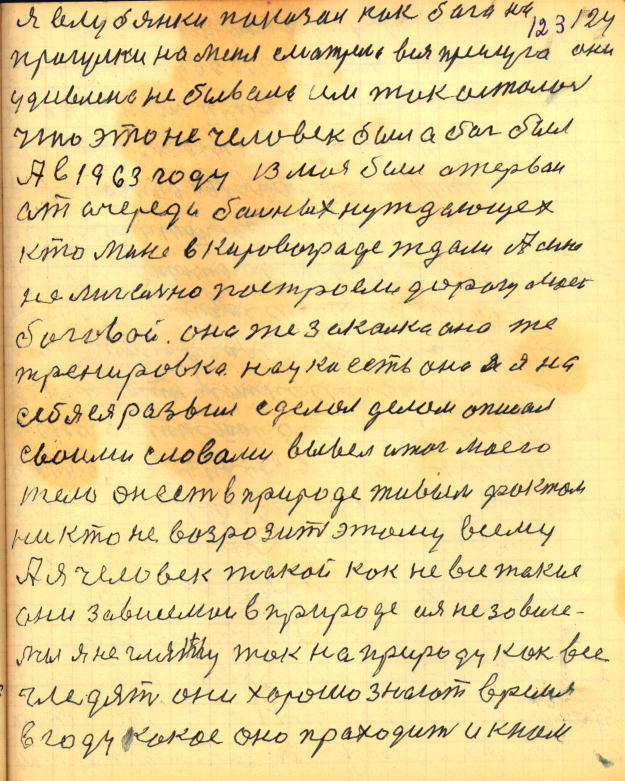 я в лубянки показал как бога на 123/124
прогулки на меня сматрели вся прислуга они
удивлено не бывали им так осталос
что это не человек был а бог был
А в 1963 году 13 мая был отерван
от очереди больных нуждающех
кто мине в Кировограде ждали А мне
не мислино построели дорогу моей
боговой. она же закалка она же
тренировка наука есть она я на
себя её развил сделал делом описал
своими словами вывел итог моего
тела он ест в природе живым фактом
никто не возрозит этому всему
А я человек такой как не все такие
они зависемои в природе ая незовисе-
мы я не гляжу так на природу как все
гледят они хорошо знают время
в году какое оно праходит и к ним